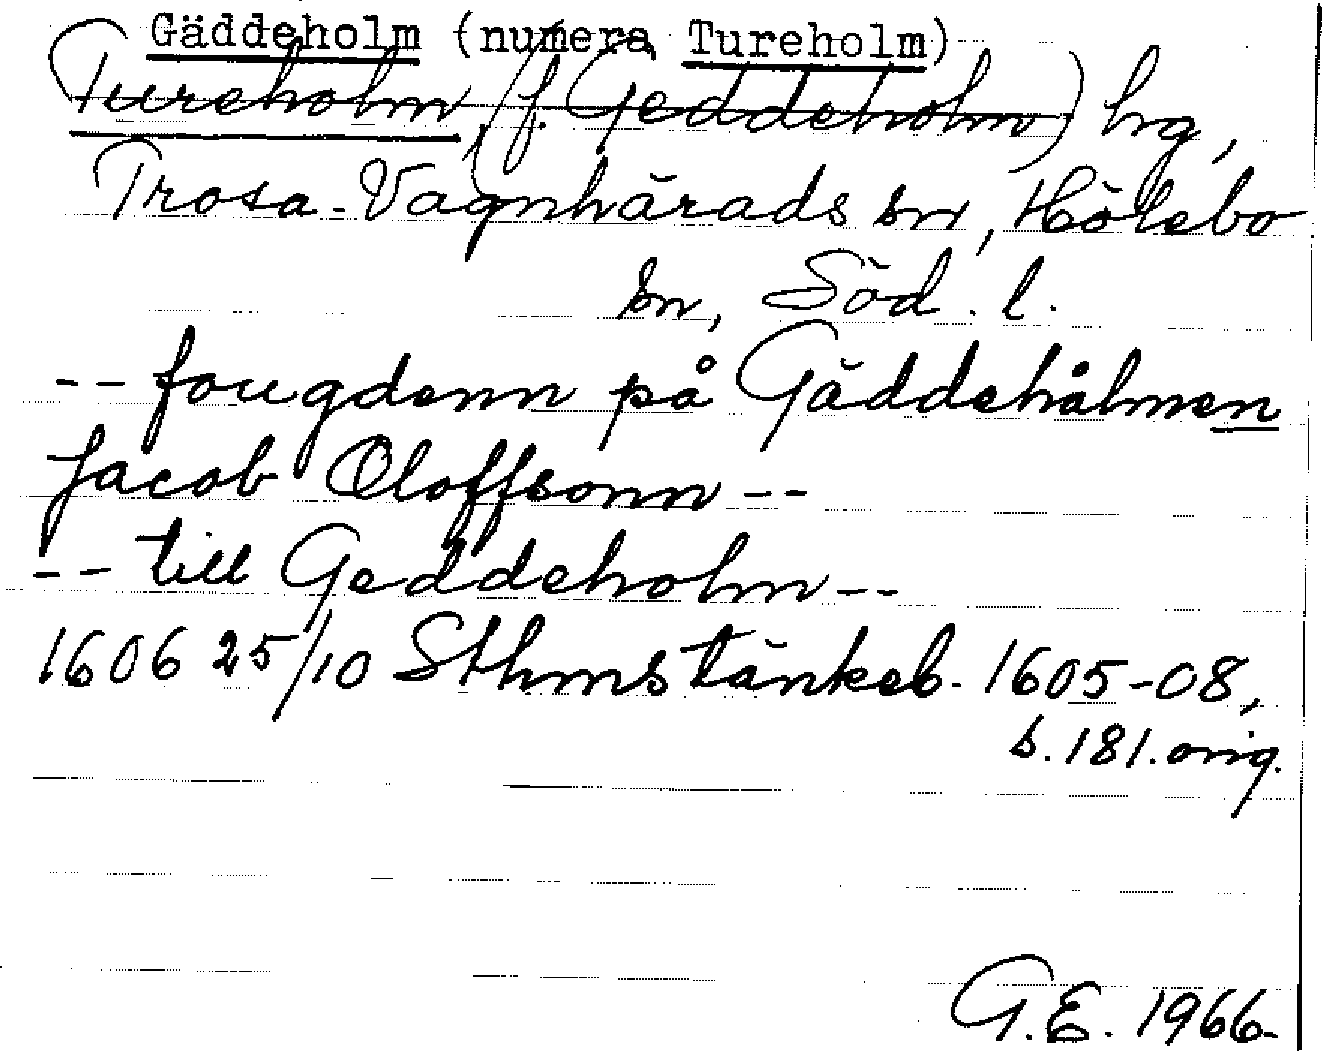 Gäddeholm (numera Tureholm)
Tureholm, (f. Geddeholm) hg,
Trosa-Vagnhärads sn, Hölebo
sn, Söd. l.
-- fougdenn på Gäddehålmen
Jacob Oloffsonn --
-- till Geddeholm --
1606 25/10 Sthms tänkeb. 1605-08,
s. 181. orig.
G.E. 1966